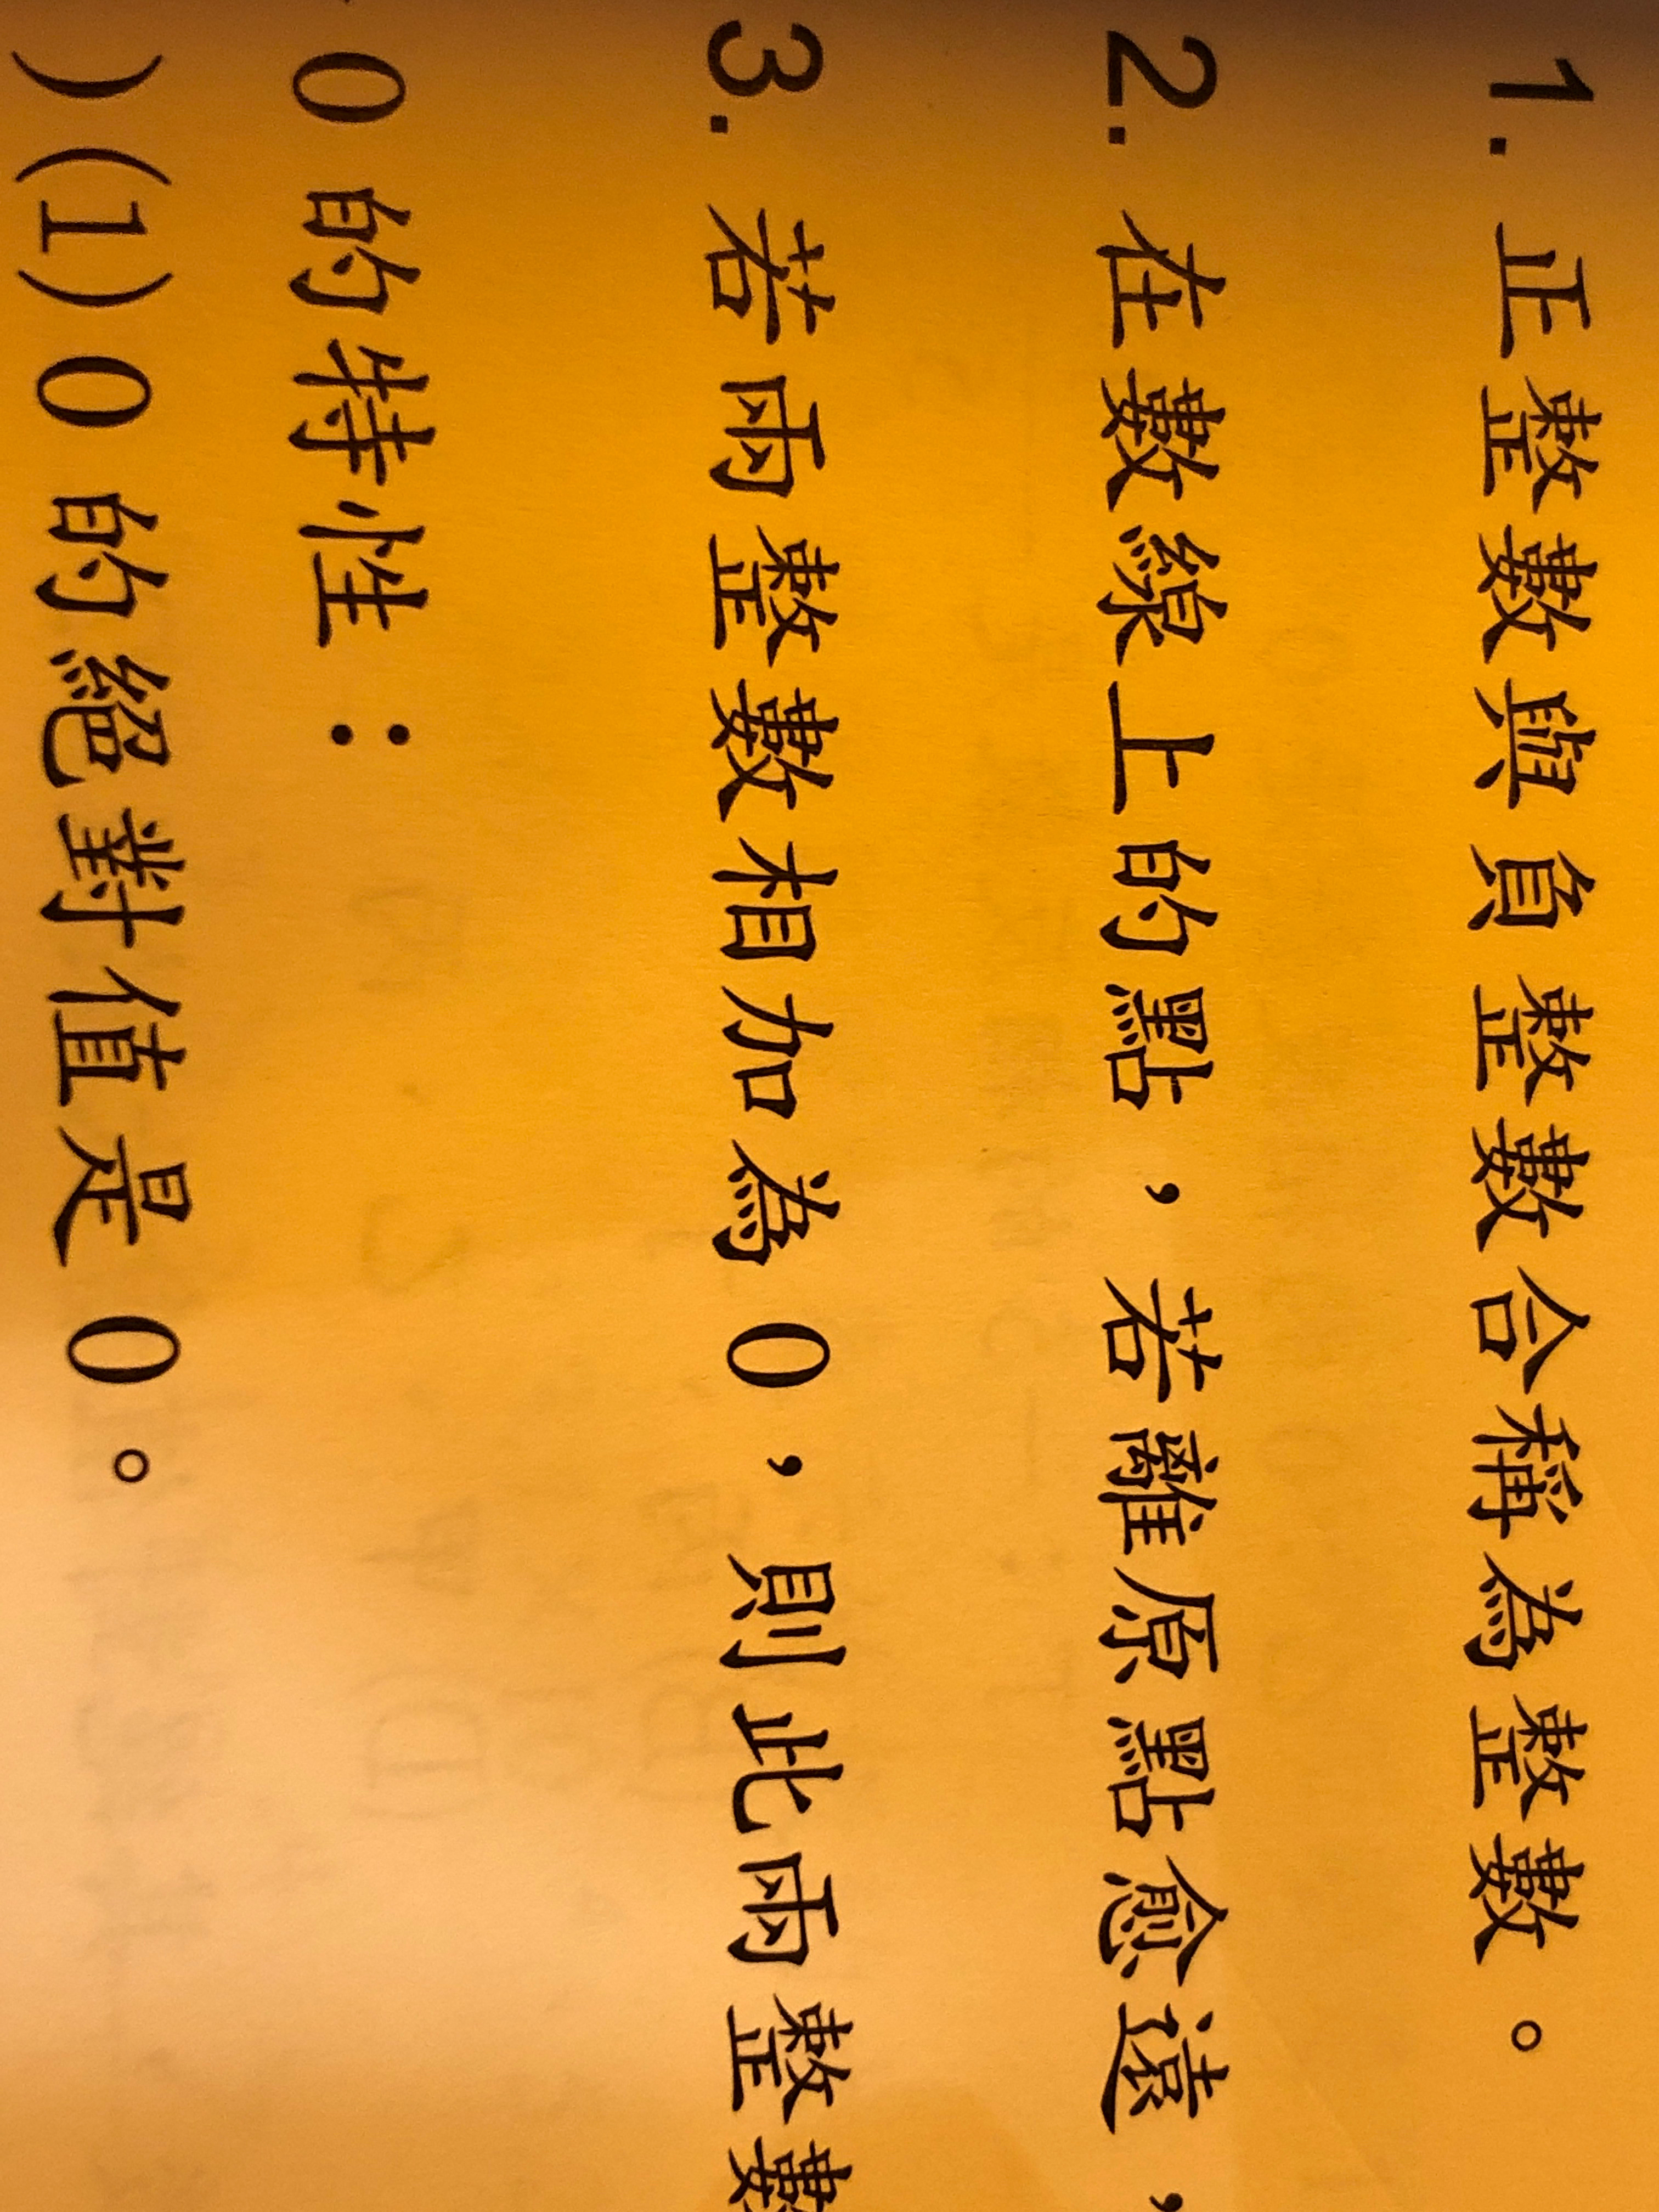 1. 正整數與負整數合稱為整數。
2. 在數線上的點，若離原點愈遠，
3. 若兩整數相加為 0，則此兩整數
0 的特性：
)(1) 0 的絕對值是 0。